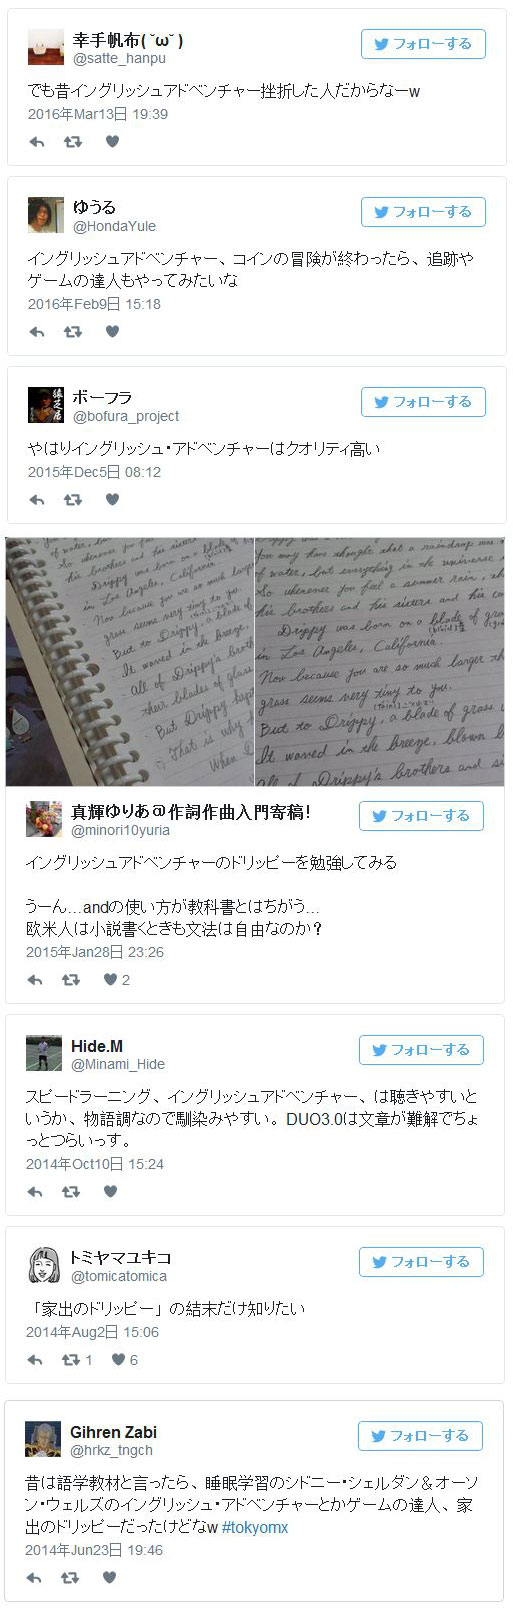 幸手帆布( ˘ω˘ )
フォローする
@satte_hanpu
でも昔イングリッシュアドベンチャー挫折した人だからなーw
2016年Mar13日 19:39
ゆうる
フォローする
@HondaYule
イングリッシュアドベンチャー、コインの冒険が終わったら、追跡や
ゲームの達人もやってみたいな
2016年Feb9日 15:18
ボーフラ
フォローする
@bofura_project
やはりイングリッシュ・アドベンチャーはクオリティ高い
2015年Dec5日 08:12
of water, but
his brothers and his sisters
Drippy was born on a blade of
in Los Angeles, California
Now because you are so much larger
grass seems very tiny to you.
But to Drippy, a blade of
It waved in the breeze,
All of Drippy's brothers
their blades of glass
But Drippy kept
That is why
When D
You may have thought that a raindrop was
of water, but everything in the universe
So whenever you feel a summer rain,
his brothers and his sisters and his
Drippy was born on a blade of gra
in Los Angeles, California
Now because you are so much larger th
grass seems very tiny to you.
But to Drippy, a blade of grass
It waved in the breeze, blown b
All of Drippy's brothers and si
真輝ゆりあ@作詞作曲入門寄稿!
フォローする
@minori10yuria
イングリッシュアドベンチャーのドリッピーを勉強してみる
うーん…andの使い方が教科書とはちがう…
欧米人は小説書くときも文法は自由なのか？
2015年Jan28日 23:26
2
Hide.M
フォローする
@Minami_Hide
スピードラーニング、イングリッシュアドベンチャー、は聴きやすいと
いうか、物語調なので馴染みやすい。DUO3.0は文章が難解でちょ
っとつらいっす。
2014年Oct10日 15:24
トミヤマユキコ
フォローする
@tomicatomica
「家出のドリッピー」の結末だけ知りたい
2014年Aug2日 15:06
1 6
Gihren Zabi
フォローする
@hrkz_tngch
昔は語学教材と言ったら、睡眠学習のシドニー・シェルダン＆オーソ
ン・ウェルズのイングリッシュ・アドベンチャーとかゲームの達人、家
出のドリッピーだったけどなw #tokyomx
2014年Jun23日 19:46